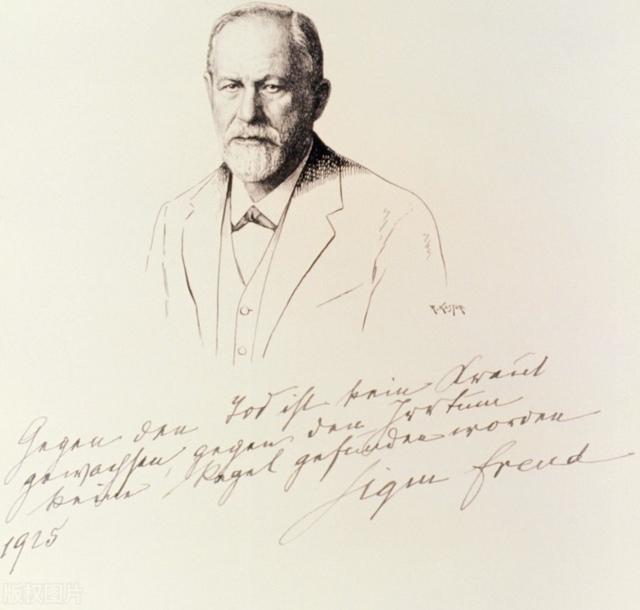 Gegen den Tod ist kein Kraut
gewachsen, gegen den Irrtum
keine Regel gefunden worden
Sigm Freud
1925
版权图片